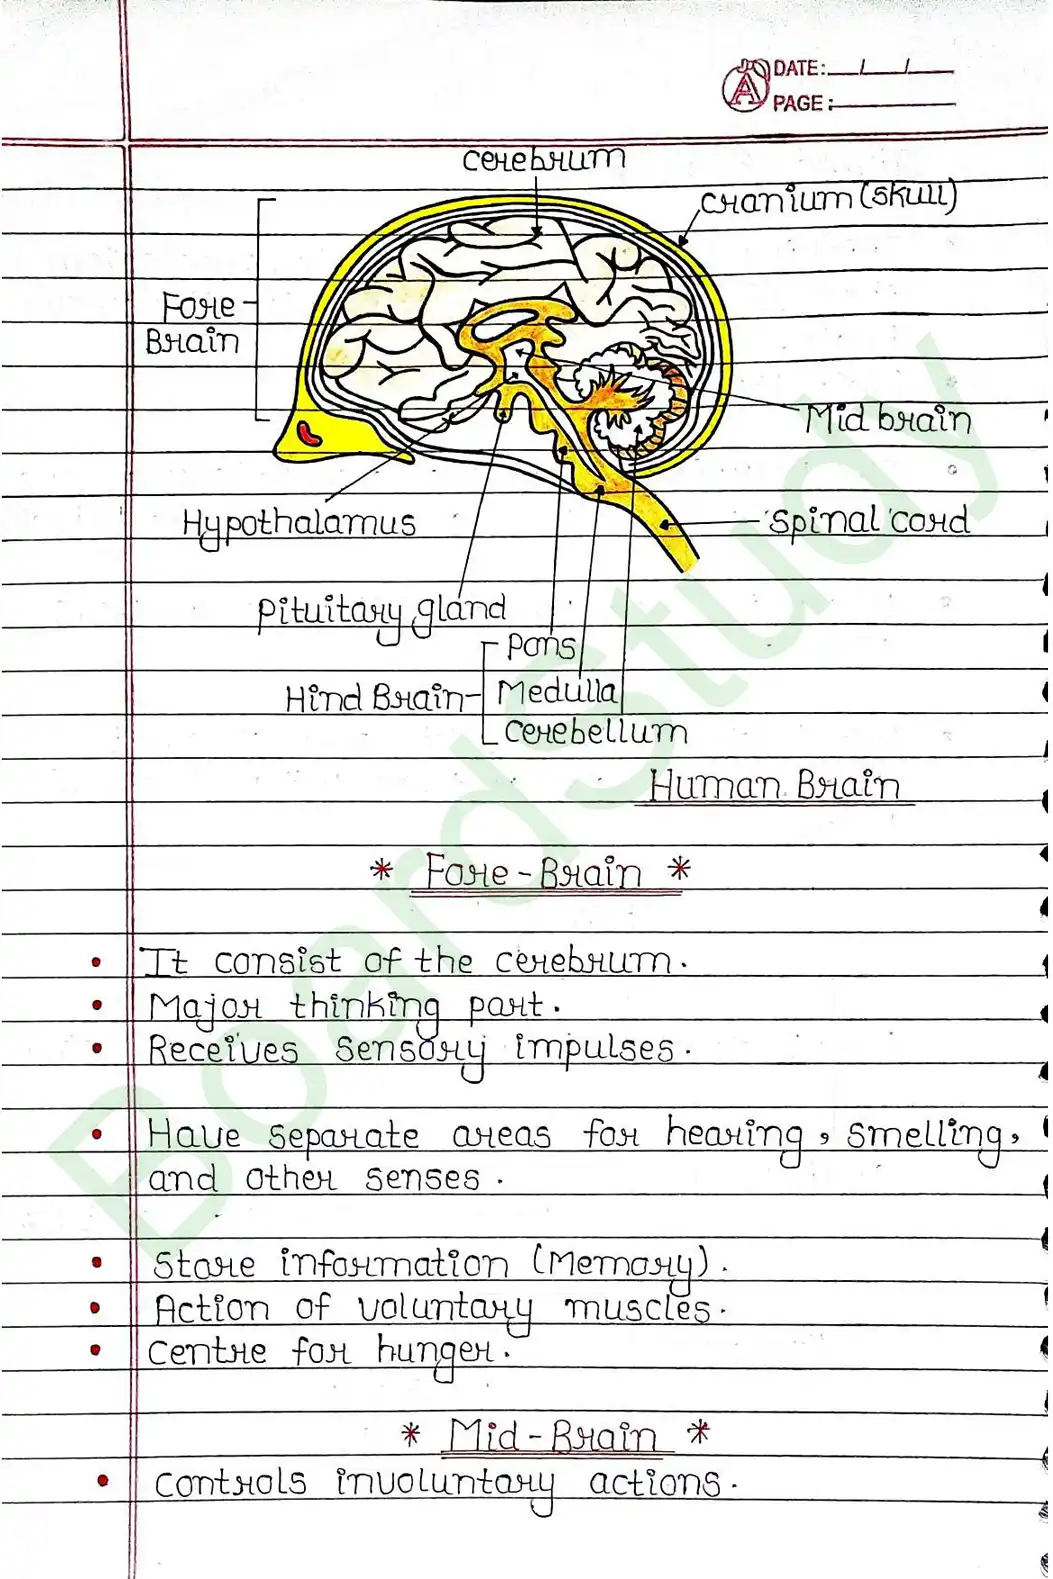 DATE: / /
PAGE:
cerebrum
cranium (skull)
Fore
Brain
Mid brain
Hypothalamus
spinal cord
Pituitary gland
Pons
Hind Brain
Medulla
cerebellum
Human Brain
* Fore-Brain *
• It consist of the cerebrum.
• Major thinking part.
• Receives sensory impulses.
• Have separate areas for hearing, smelling,
and other senses.
• Store information (Memory).
• Action of voluntary muscles.
• centre for hunger.
* Mid-Brain *
• controls involuntary actions.
BoardStudy